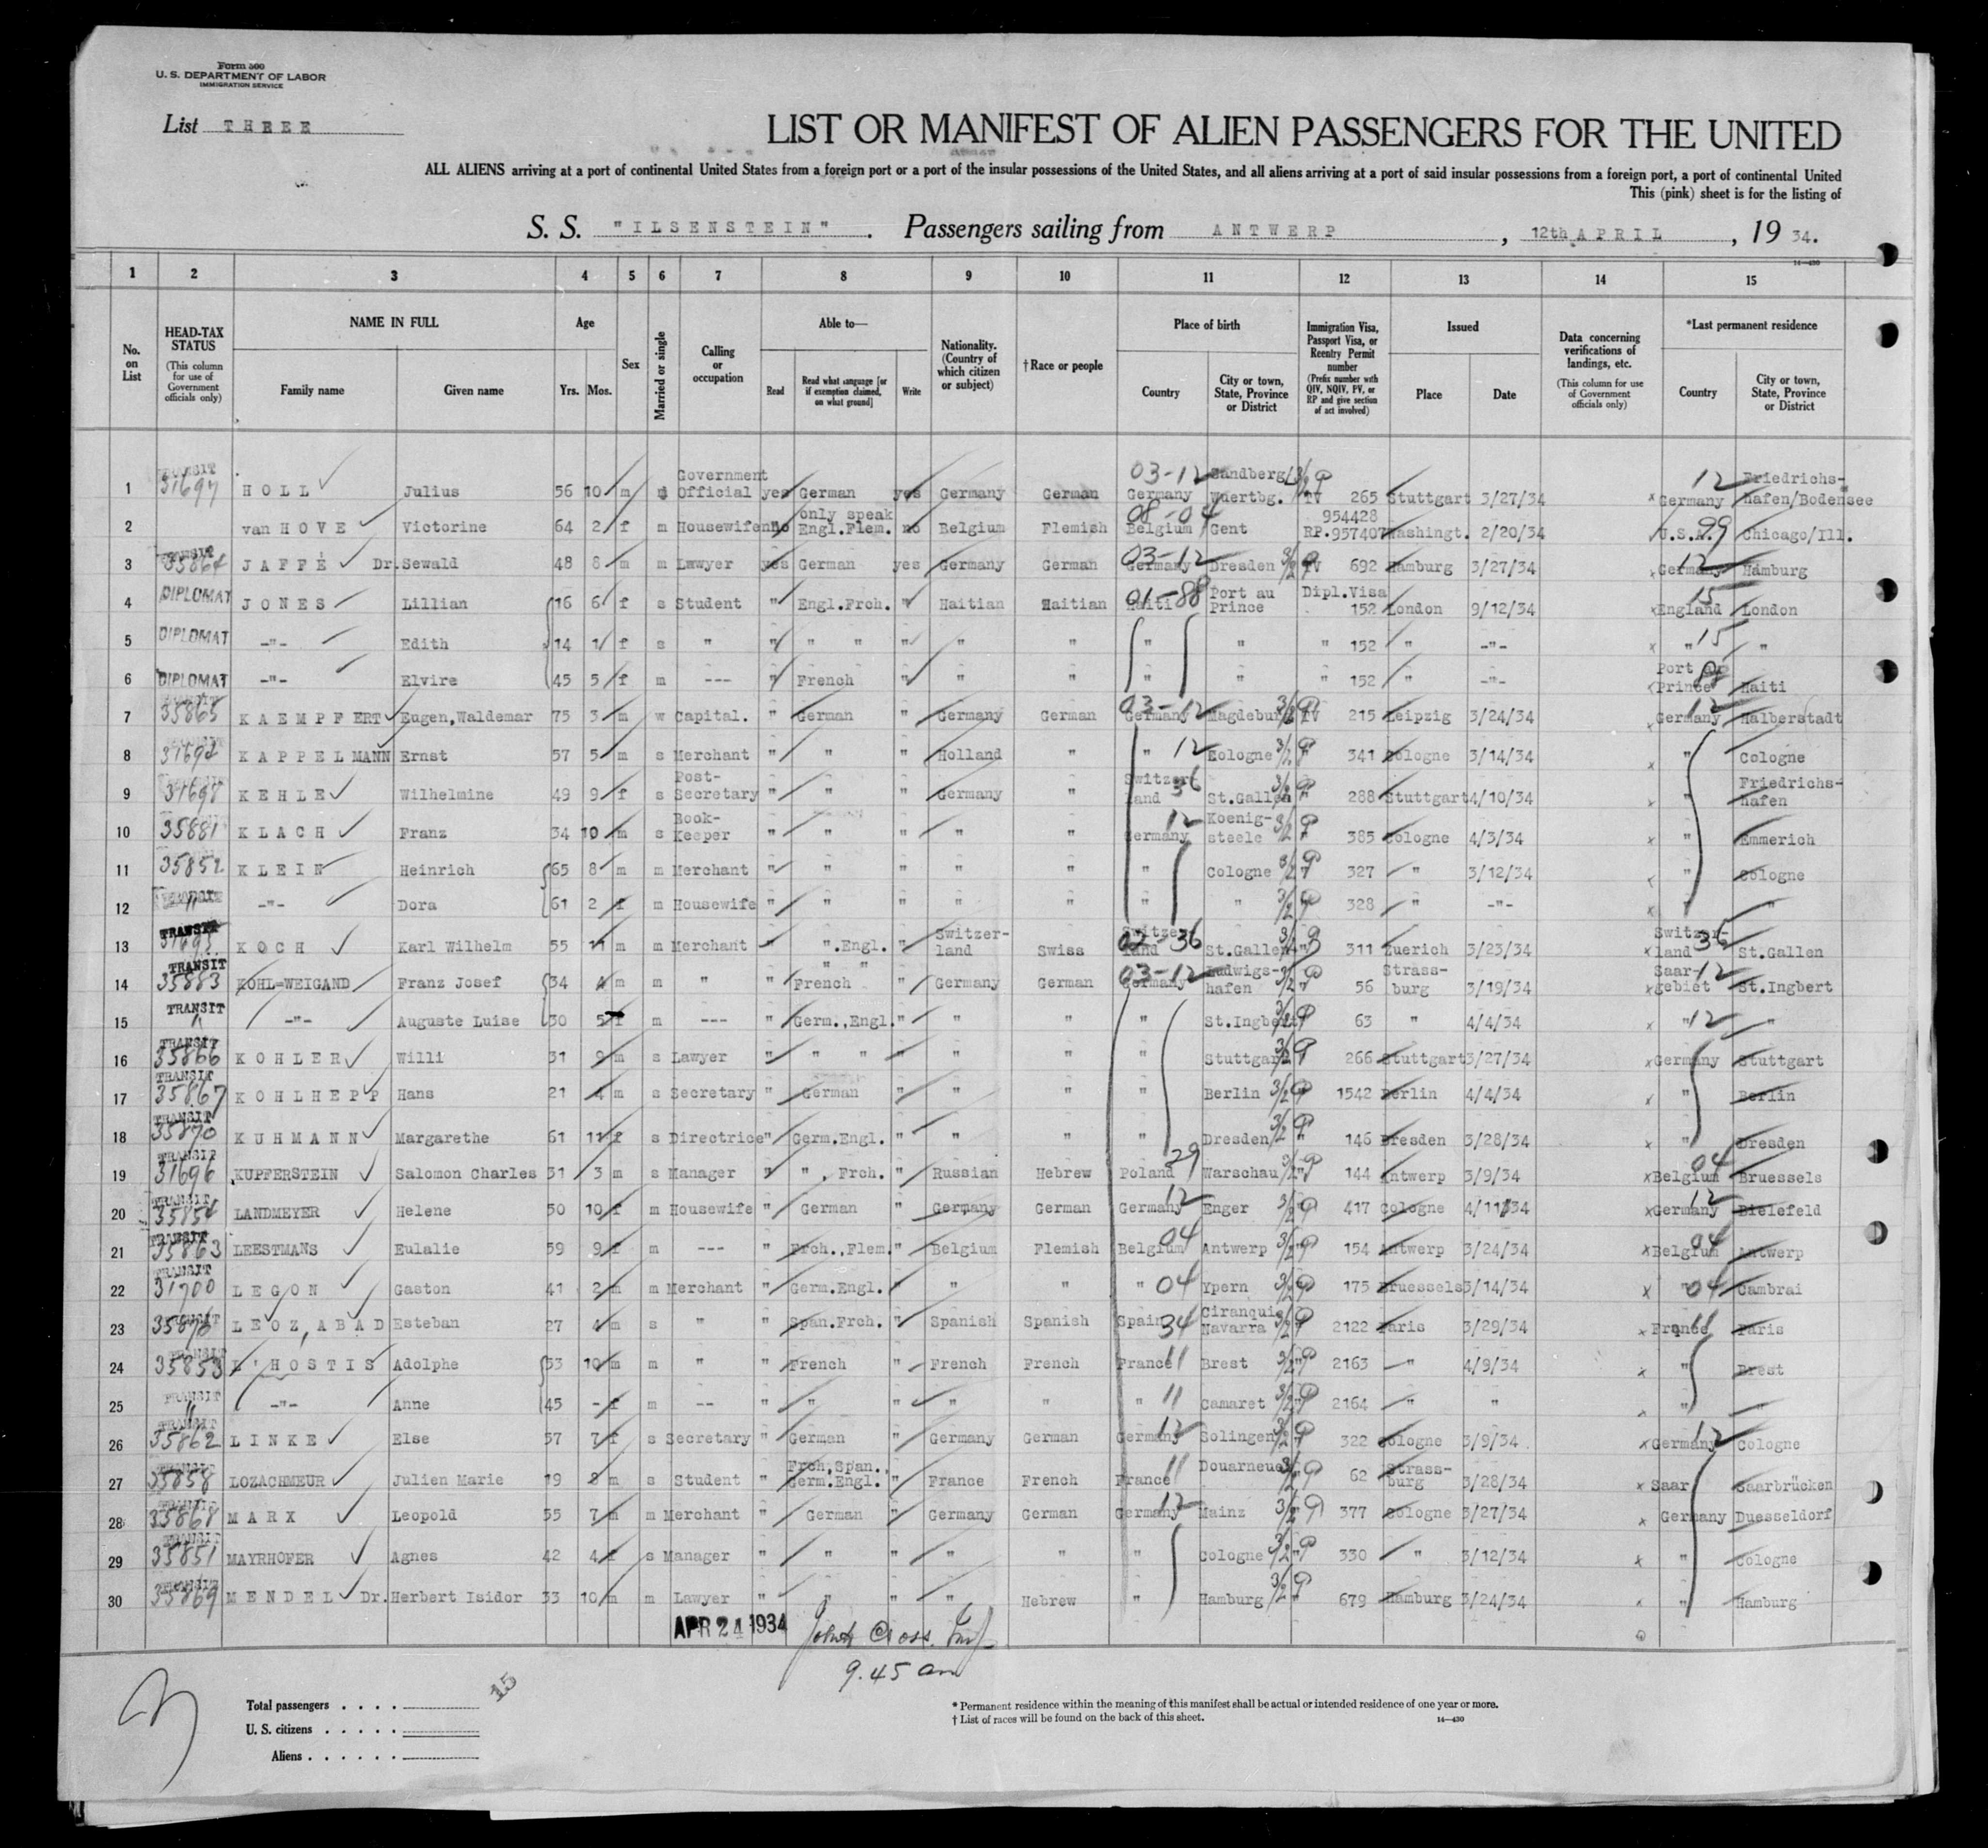 Form 500
U. S. DEPARTMENT OF LABOR
IMMIGRATION SERVICE
List THREE
LIST OR MANIFEST OF ALIEN PASSENGERS FOR THE UNITED
ALL ALIENS arriving at a port of continental United States from a foreign port or a port of the insular possessions of the United States, and all aliens arriving at a port of said insular possessions from a foreign port, a port of continental United
This (pink) sheet is for the listing of
S. S. "ILSENSTEIN". Passengers sailing from ANTWERP, 12th APRIL, 19 34.
14—430
1 2 3 4 5 6 7 8 9 10 11 12 13 14 15
No. on List
HEAD-TAX STATUS (This column for use of Government officials only)
NAME IN FULL
Family name Given name
Age
Yrs. Mos.
Sex
Married or single
Calling or occupation
Able to—
Read
Read what language [or if exemption claimed, on what ground]
Write
Nationality. (Country of which citizen or subject)
†Race or people
Place of birth
Country
City or town, State, Province or District
Immigration Visa, Passport Visa, or Reentry Permit number (Prefix number with QIV, NQIV, PV, or RP and give section of act involved)
Issued
Place Date
Data concerning verifications of landings, etc. (This column for use of Government officials only)
*Last permanent residence
Country
City or town, State, Province or District
1 TRANSIT 31697 HOLL Julius 56 10 m Government Official yes German yes Germany German 03-12 Germany Wuertbg. 265 Stuttgart 3/27/34 12 Germany Friedrichshafen/Bodensee
2 van HOVE Victorine 64 2 f m Housewife no only speak Engl.Flem. no Belgium Flemish 08-04 Belgium Gent 954428 RP.957407 Washingt. 2/20/34 U.S.A. 99 Chicago/Ill.
3 TRANSIT 35864 JAFFÉ Dr. Sewald 48 8 m m Lawyer yes German yes Germany German 03-12 Germany Dresden 3/2 692 Hamburg 3/27/34 Germany 12 Hamburg
4 DIPLOMAT JONES Lillian 16 6 f s Student " Engl.Frch. " Haitian Haitian 01-88 Haiti Port au Prince Dipl.Visa 152 London 9/12/34 England 15 London
5 DIPLOMAT -"- Edith 14 1 f s " " " " " " " " " " 152 " -"- " 15 "
6 DIPLOMAT -"- Elvire 45 5 f m --- " French " " " " " " 152 " -"- Port au Prince Haiti
7 35865 KAEMPFERT Eugen,Waldemar 75 3 m w Capital. " German " Germany German 03-12 Germany Magdeburg 215 Leipzig 3/24/34 Germany 12 Halberstadt
8 31692 KAPPELMANN Ernst 57 5 m s Merchant " " " Holland " " 12 Cologne 3/2 " 341 Cologne 3/14/34 " Cologne
9 31698 KEHLE Wilhelmine 49 9 f s Post-Secretary " " " Germany " Switzerland 36 St.Gallen 3/2 288 Stuttgart 4/10/34 " Friedrichshafen
10 35881 KLACH Franz 34 10 m s Book-Keeper " " " " " Germany 12 Koenigsteele 3/2 385 Cologne 4/3/34 " Emmerich
11 35852 KLEIN Heinrich 65 8 m m Merchant " " " " " " Cologne 3/2 327 " 3/12/34 " Cologne
12 " -"- Dora 61 2 f m Housewife " " " " " " " 3/2 328 " -"- " "
13 TRANSIT KOCH Karl Wilhelm 55 11 m m Merchant " ".Engl. " Switzerland Swiss 02-36 Switzerland St.Gallen 311 Zuerich 3/23/34 Switzerland 36 St.Gallen
14 TRANSIT 35883 KOHL=WEIGAND Franz Josef 34 4 m m " " " " French " Germany German 03-12 Germany Ludwigshafen 3/2 56 Strassburg 3/19/34 Saargebiet 12 St.Ingbert
15 TRANSIT " -"- Auguste Luise 30 5 f m --- " Germ.,Engl. " " " " St.Ingbert 63 " 4/4/34 " 12 "
16 TRANSIT 35866 KOHLER Willi 31 9 m s Lawyer " " " " " " " Stuttgart 266 Stuttgart 3/27/34 Germany Stuttgart
17 TRANSIT 35867 KOHLHEPP Hans 21 4 m s Secretary " German " " " " Berlin 3/2 1542 Berlin 4/4/34 " Berlin
18 TRANSIT 35870 KUHMANN Margarethe 61 11 f s Directrice " Germ.Engl. " " " " Dresden 3/2 146 Dresden 3/28/34 " Dresden
19 TRANSIT 31696 KUPFERSTEIN Salomon Charles 31 3 m s Manager " ", Frch. " Russian Hebrew Poland 29 Warschau 3/2 " 144 Antwerp 3/9/34 Belgium 04 Bruessels
20 TRANSIT 35854 LANDMEYER Helene 50 10 f m Housewife " German " Germany German Germany 12 Enger 3/2 417 Cologne 4/11/34 Germany 12 Bielefeld
21 TRANSIT 35863 LEESTMANS Eulalie 59 9 f m --- " Frch.,Flem. " Belgium Flemish Belgium 04 Antwerp 3/2 " 154 Antwerp 3/24/34 Belgium 04 Antwerp
22 TRANSIT 31700 LEGON Gaston 41 2 m m Merchant " Germ.Engl. " " " " 04 Ypern 3/2 175 Bruessels 3/14/34 " 04 Cambrai
23 TRANSIT LEOZ,ABAD Esteban 27 4 m s " " Span.Frch. " Spanish Spanish Spain 34 Ciranqui Navarra 3/2 2122 Paris 3/29/34 France 11 Paris
24 TRANSIT 35853 L'HOSTIS Adolphe 53 10 m m " " French " French French France 11 Brest 3/2 " 2163 -" 4/9/34 " Brest
25 TRANSIT " -"- Anne 45 - f m -- " " " " " " 11 Camaret 3/2 " 2164 " " " "
26 TRANSIT 35862 LINKE Else 57 7 f s Secretary " German " Germany German Germany 12 Solingen 3/2 322 Cologne 3/9/34 Germany 12 Cologne
27 TRANSIT 35858 LOZACHMEUR Julien Marie 19 8 m s Student " Frch,Span., Germ.Engl. " France French France 11 Douarnenez 62 Strassburg 3/28/34 Saar Saarbrücken
28 TRANSIT 35868 MARX Leopold 55 7 m m Merchant " German " Germany German Germany 12 Mainz 3/2 377 Cologne 3/27/34 Germany Duesseldorf
29 TRANSIT 35851 MAYRHOFER Agnes 42 4 f s Manager " " " " " " Cologne 3/2 " 330 " 3/12/34 " Cologne
30 TRANSIT 35869 MENDEL Dr. Herbert Isidor 33 10 m m Lawyer " " " " Hebrew " Hamburg 3/2 " 679 Hamburg 3/24/34 " Hamburg
APR 24 1934
9.45 am
15
Total passengers . . . .
U. S. citizens . . . . .
Aliens . . . . . .
* Permanent residence within the meaning of this manifest shall be actual or intended residence of one year or more.
† List of races will be found on the back of this sheet.
14—430